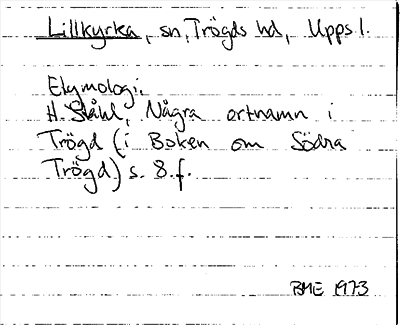 Lillkyrka, sn, Trögds hd, Upps l.
Etymologi:
H. Ståhl, Några ortnamn i
Trögd (i Boken om Södra
Trögd) s. 8 f.
BME 1973